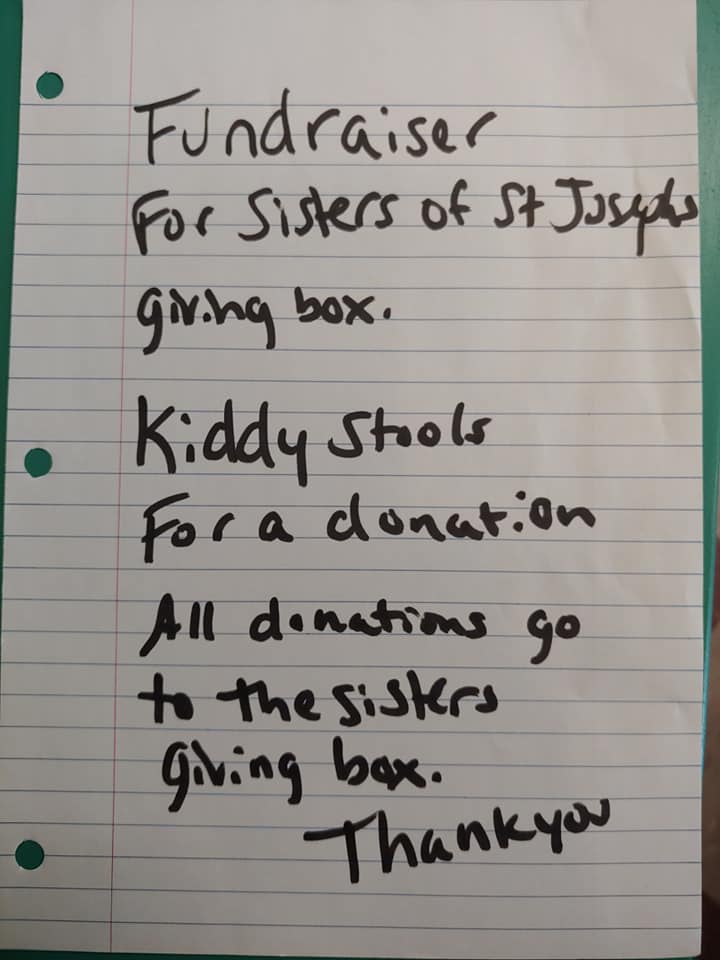 Fundraiser
For Sisters of St Josephs
giving box.
Kiddy stools
For a donation
All donations go
to the sisters
Giving box.
Thankyou